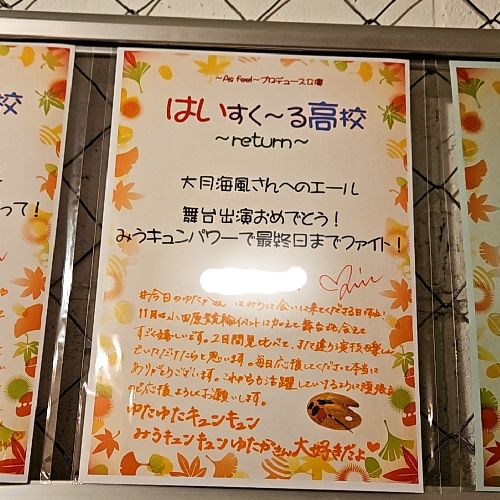 ～As feel～プロデュース公演
はいすく～る高校
～return～
大月海風さんへのエール
舞台出演おめでとう！
みうキュンパワーで最終日までファイト！
って！
校
#今日のゆたかさん はみうに会いに来てくださる日
11月は小田原競輪イベントに加えて舞台でも会えて
すごく嬉しいです。2日間見比べて、また違う演技を楽しん
でいただけたらと思います。毎日応援してくださって本当に
ありがとうございます。これからも活躍していけるように頑張る
ので応援よろしくお願いします。
ゆたゆたキュンキュン
みうキュンキュンゆたかさん大好きだよ